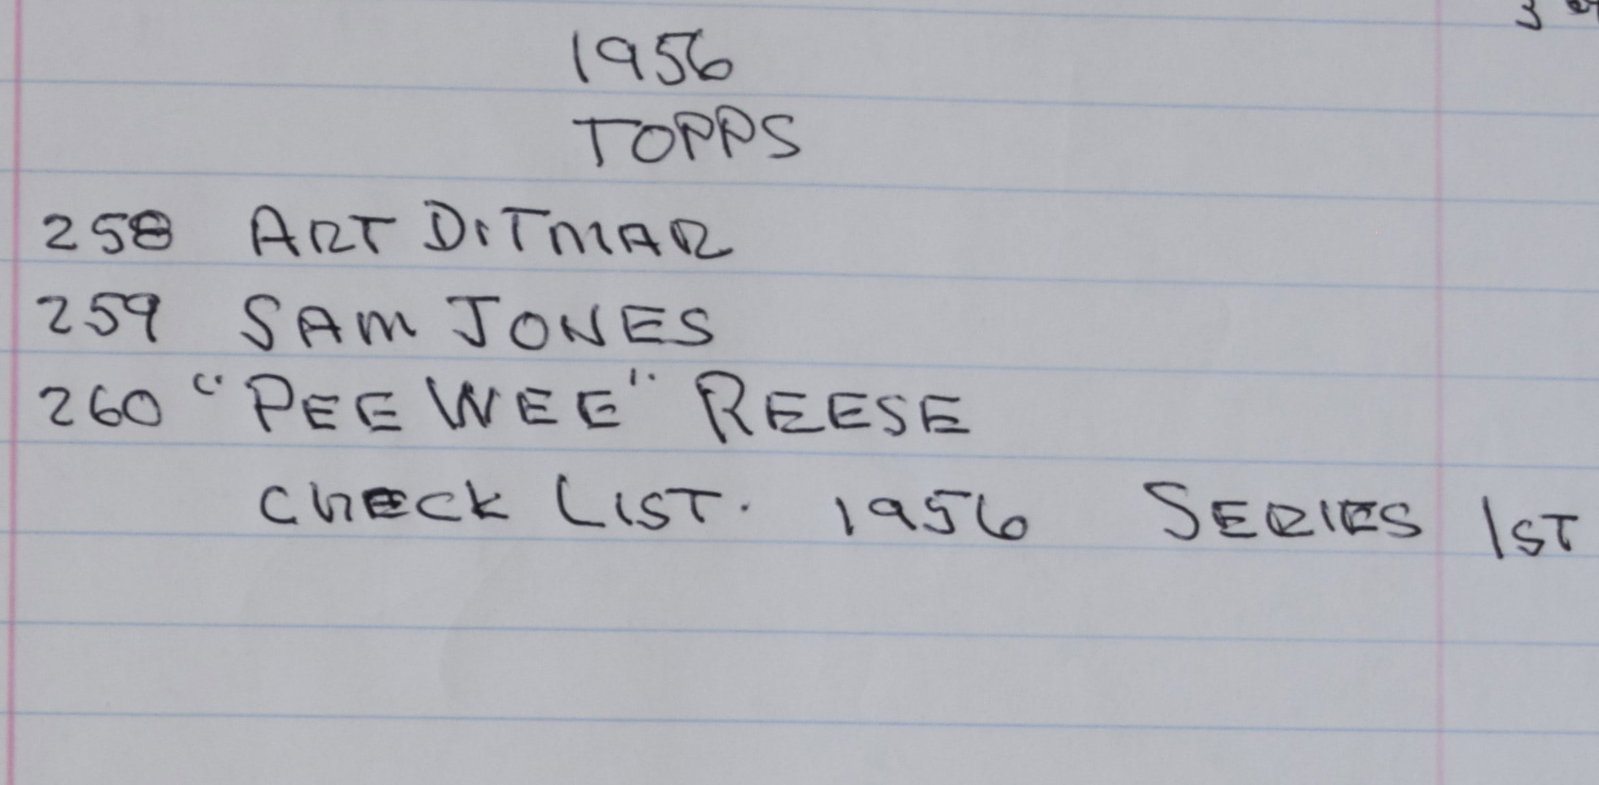 1956
TOPPS
258 ART DITMAR
259 SAM JONES
260 "PEE WEE" REESE
CHECK LIST. 1956 SERIES 1ST